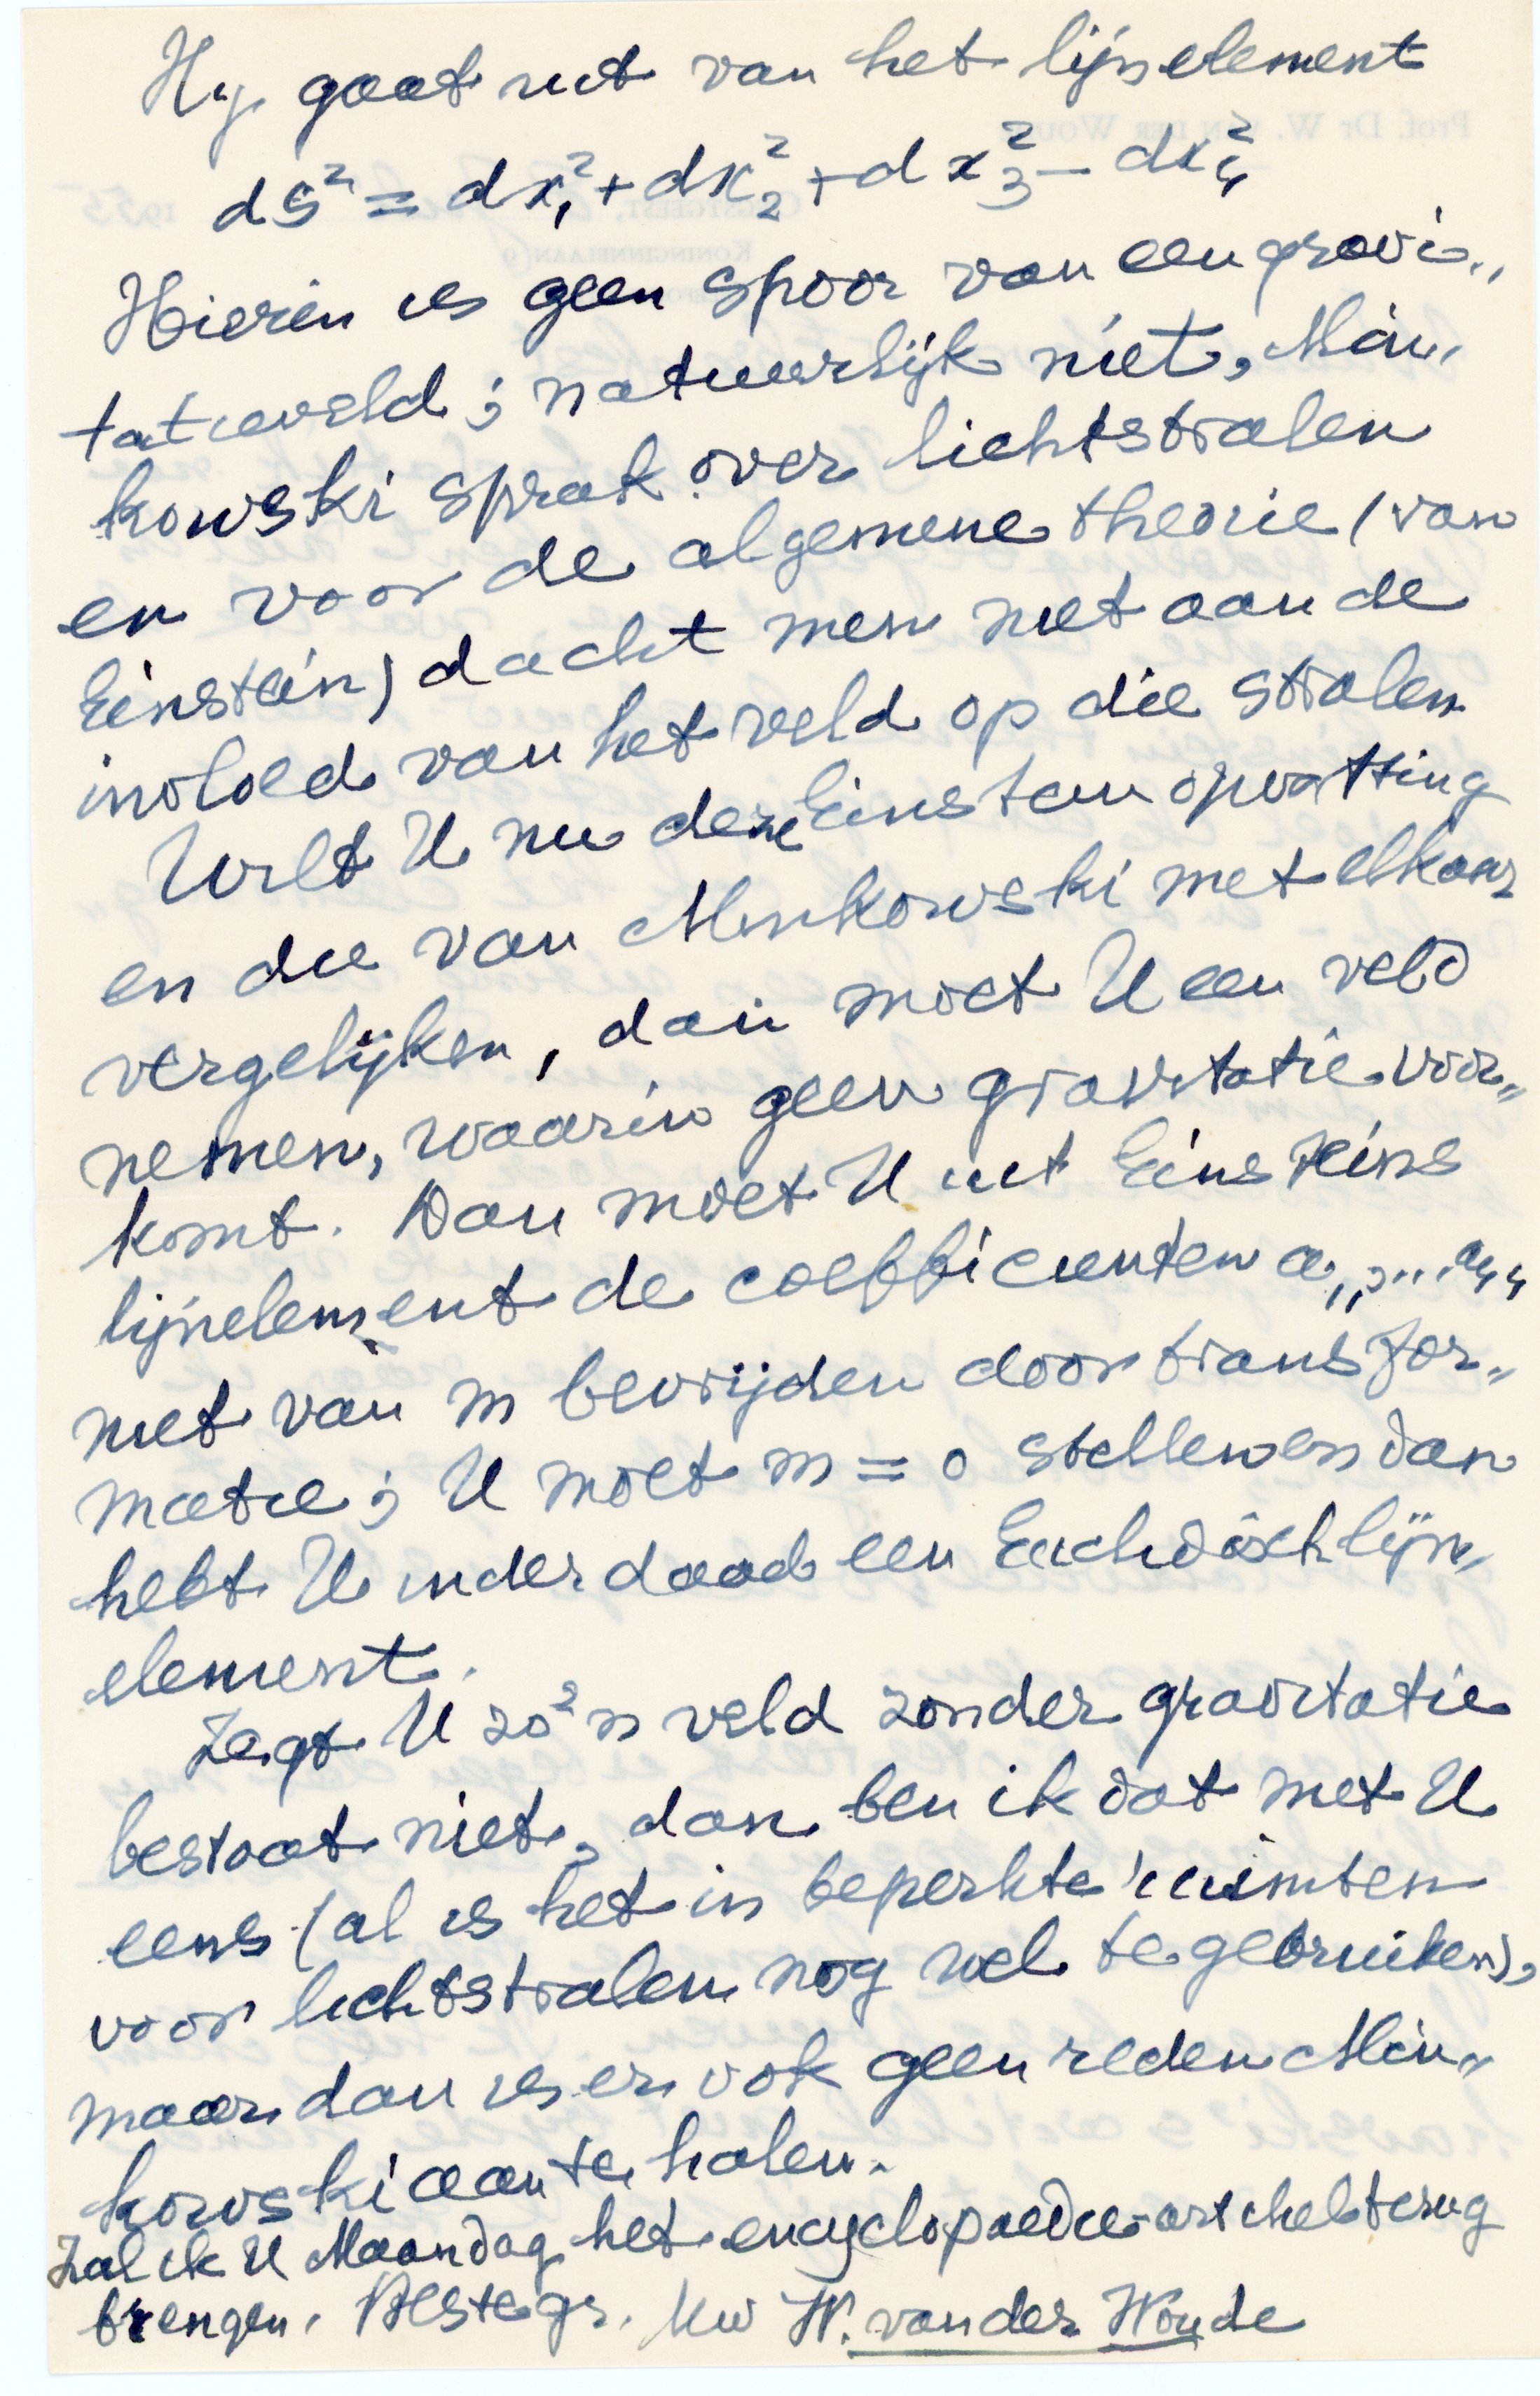 Hij gaat uit van het lijnelement
ds² = dx₁² + dx₂² + dx₃² - dx₄²
Hierin is geen spoor van een gravi„
tatieveld; natuurlijk niet, Min„
kowski sprak over lichtstralen
en voor de algemene theorie (van
Einstein) dacht men niet aan de
invloed van het veld op die stralen
Wilt U nu deze Einstein opvatting
en die van Minkowski met elkaar
vergelijken, dan moet U een veld
nemen, waarin geen gravitatie voor„
komt. Dan moet U uit Einsteins
lijnelement de coefficienten a₁₁,...a₄₄
niet van m bevrijden door transfor„
matie; U moet m = 0 stellen en dan
hebt U inderdaad een Euclidisch lijn„
element.
Zegt U zo'n veld zonder gravitatie
bestaat niet, dan ben ik dat met U
eens (al is het in beperkte ruimten
voor lichtstralen nog wel te gebruiken),
maar dan is er ook geen reden Min„
kowski aan te halen.
Zal ik U Maandag het encyclopaedie-artikel terug
brengen. Beste gr. Uw W. van der Woude
Prof. Dr W. VAN DER WOUDE
OEGSTGEEST, 1955
KONINGINNELAAN 9